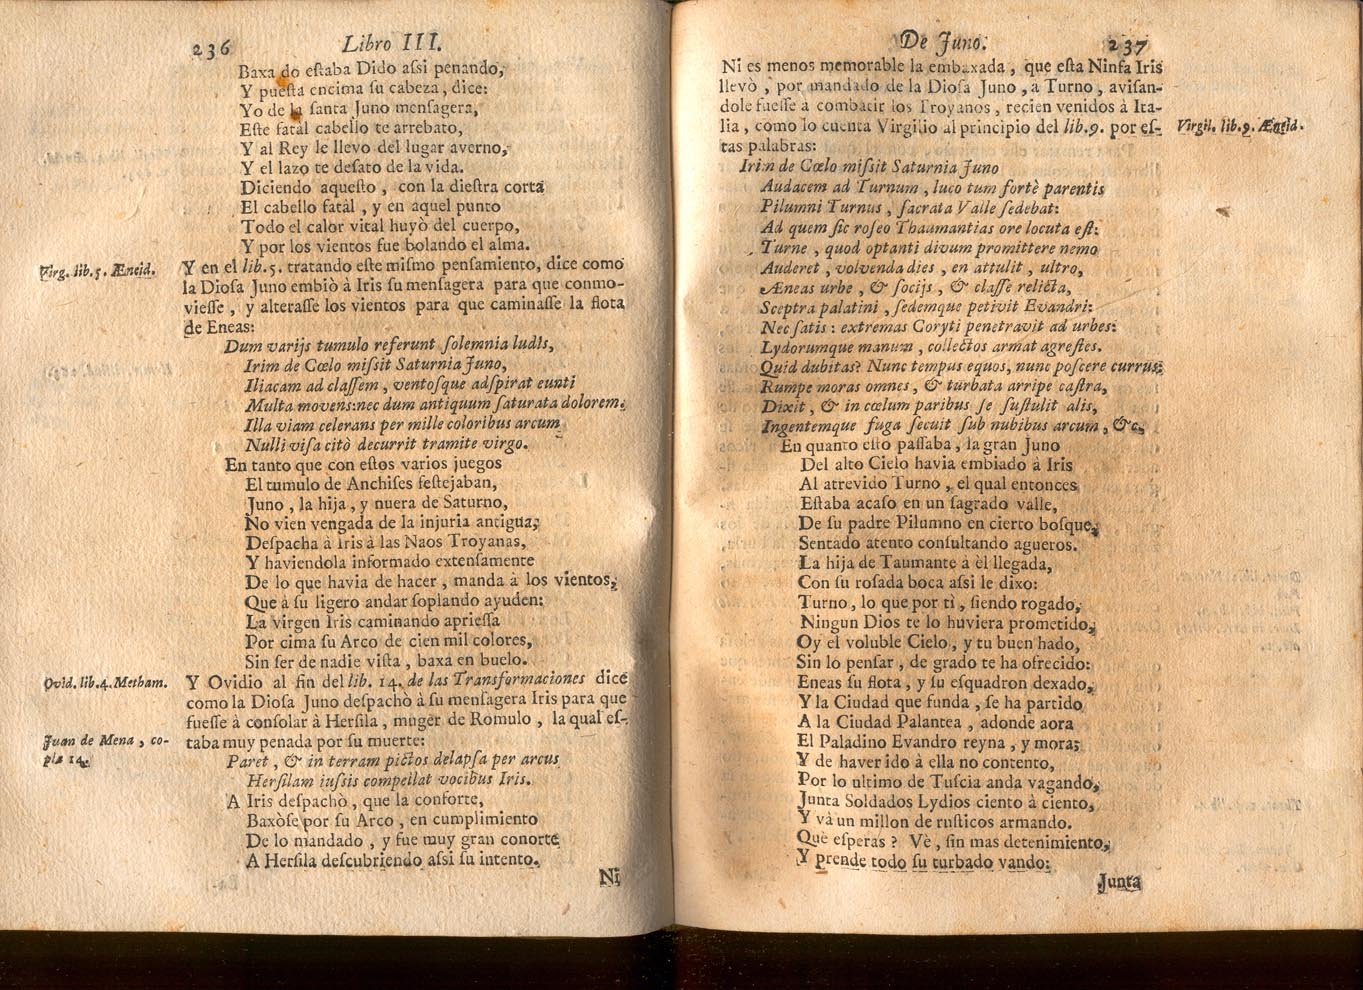 236 Libro III.
Baxa do eſtaba Dido aſsi penando,
Y pueſta encima ſu cabeza, dice:
Yo de la ſanta Juno menſagera,
Eſte fatal cabello te arrebato,
Y al Rey le llevo del lugar averno,
Y el lazo te deſato de la vida.
Diciendo aqueſto, con la dieſtra corta
El cabello fatal, y en aquel punto
Todo el calor vital huyò del cuerpo,
Y por los vientos fue bolando el alma.
Virg. lib. 5. Æneid.
Y en el lib. 5. tratando eſte miſmo penſamiento, dice como
la Dioſa Juno embiò à Iris ſu menſagera para que conmo-
vieſſe, y alteraſſe los vientos para que caminaſſe la flota
de Eneas:
Dum varijs tumulo referunt ſolemnia ludis,
Irim de Cœlo miſsit Saturnia Juno,
Iliacam ad claſſem, ventoſque adſpirat eunti
Multa movens: nec dum antiquum ſaturata dolorem.
Illa viam celerans per mille coloribus arcum
Nulli viſa citò decurrit tramite virgo.
En tanto que con eſtos varios juegos
El tumulo de Anchiſes feſtejaban,
Juno, la hija, y nuera de Saturno,
No vien vengada de la injuria antigua;
Deſpacha à Iris à las Naos Troyanas,
Y haviendola informado extenſamente
De lo que havia de hacer, manda à los vientos,
Que à ſu ligero andar ſoplando ayuden:
La virgen Iris caminando aprieſſa
Por cima ſu Arco de cien mil colores,
Sin ſer de nadie viſta, baxa en buelo.
Ovid. lib. 4. Metham.
Y Ovidio al fin del lib. 14. de las Transformaciones dice
como la Dioſa Juno deſpachò à ſu menſagera Iris para que
fueſſe à conſolar à Herſila, muger de Romulo, la qual eſ-
Juan de Mena, co-
pla 14.
taba muy penada por ſu muerte:
Paret, & in terram pictos delapſa per arcus
Herſilam iuſsis compellat vocibus Iris.
A Iris deſpachò, que la conforte,
Baxòſe por ſu Arco, en cumplimiento
De lo mandado, y fue muy gran conorte
A Herſila deſcubriendo aſsi ſu intento.
Ni
De Juno. 237
Ni es menos memorable la embaxada, que eſta Ninfa Iris
llevò, por mandado de la Dioſa Juno, a Turno, aviſan-
dole fueſſe à combatir los Troyanos, recien venidos à Ita-
lia, como lo cuenta Virgilio al principio del lib. 9. por eſ-
Virgil. lib. 9. Æneid.
tas palabras:
Irim de Cœlo miſsit Saturnia Juno
Audacem ad Turnum, luco tum fortè parentis
Pilumni Turnus, ſacrata Valle ſedebat:
Ad quem ſic roſeo Thaumantias ore locuta eſt:
Turne, quod optanti divum promittere nemo
Auderet, volvenda dies, en attulit, ultro,
Æneas urbe, & ſocijs, & claſſe relicta,
Sceptra palatini, ſedemque petivit Evandri:
Nec ſatis: extremas Coryti penetravit ad urbes:
Lydorumque manum, collectos armat agreſtes.
Quid dubitas? Nunc tempus equos, nunc poſcere currus:
Rumpe moras omnes, & turbata arripe caſtra,
Dixit, & in cœlum paribus ſe ſuſtulit alis,
Ingentemque fuga ſecuit ſub nubibus arcum, &c.
En quanto eſto paſſaba, la gran Juno
Del alto Cielo havia embiado à Iris
Al atrevido Turno, el qual entonces
Eſtaba acaſo en un ſagrado valle,
De ſu padre Pilumno en cierto boſque,
Sentado atento conſultando agueros.
La hija de Taumante à èl llegada,
Con ſu roſada boca aſsi le dixo:
Turno, lo que por tì, ſiendo rogado,
Ningun Dios te lo huviera prometido,
Oy el voluble Cielo, y tu buen hado,
Sin lo penſar, de grado te ha ofrecido:
Eneas ſu flota, y ſu eſquadron dexado,
Y la Ciudad que funda, ſe ha partido
A la Ciudad Palantea, adonde aora
El Paladino Evandro reyna, y mora;
Y de haver ido à ella no contento,
Por lo ultimo de Tuſcia anda vagando,
Junta Soldados Lydios ciento à ciento,
Y và un millon de ruſticos armando.
Què eſperas? Vè, ſin mas detenimiento,
Y prende todo ſu turbado vando:
Junta